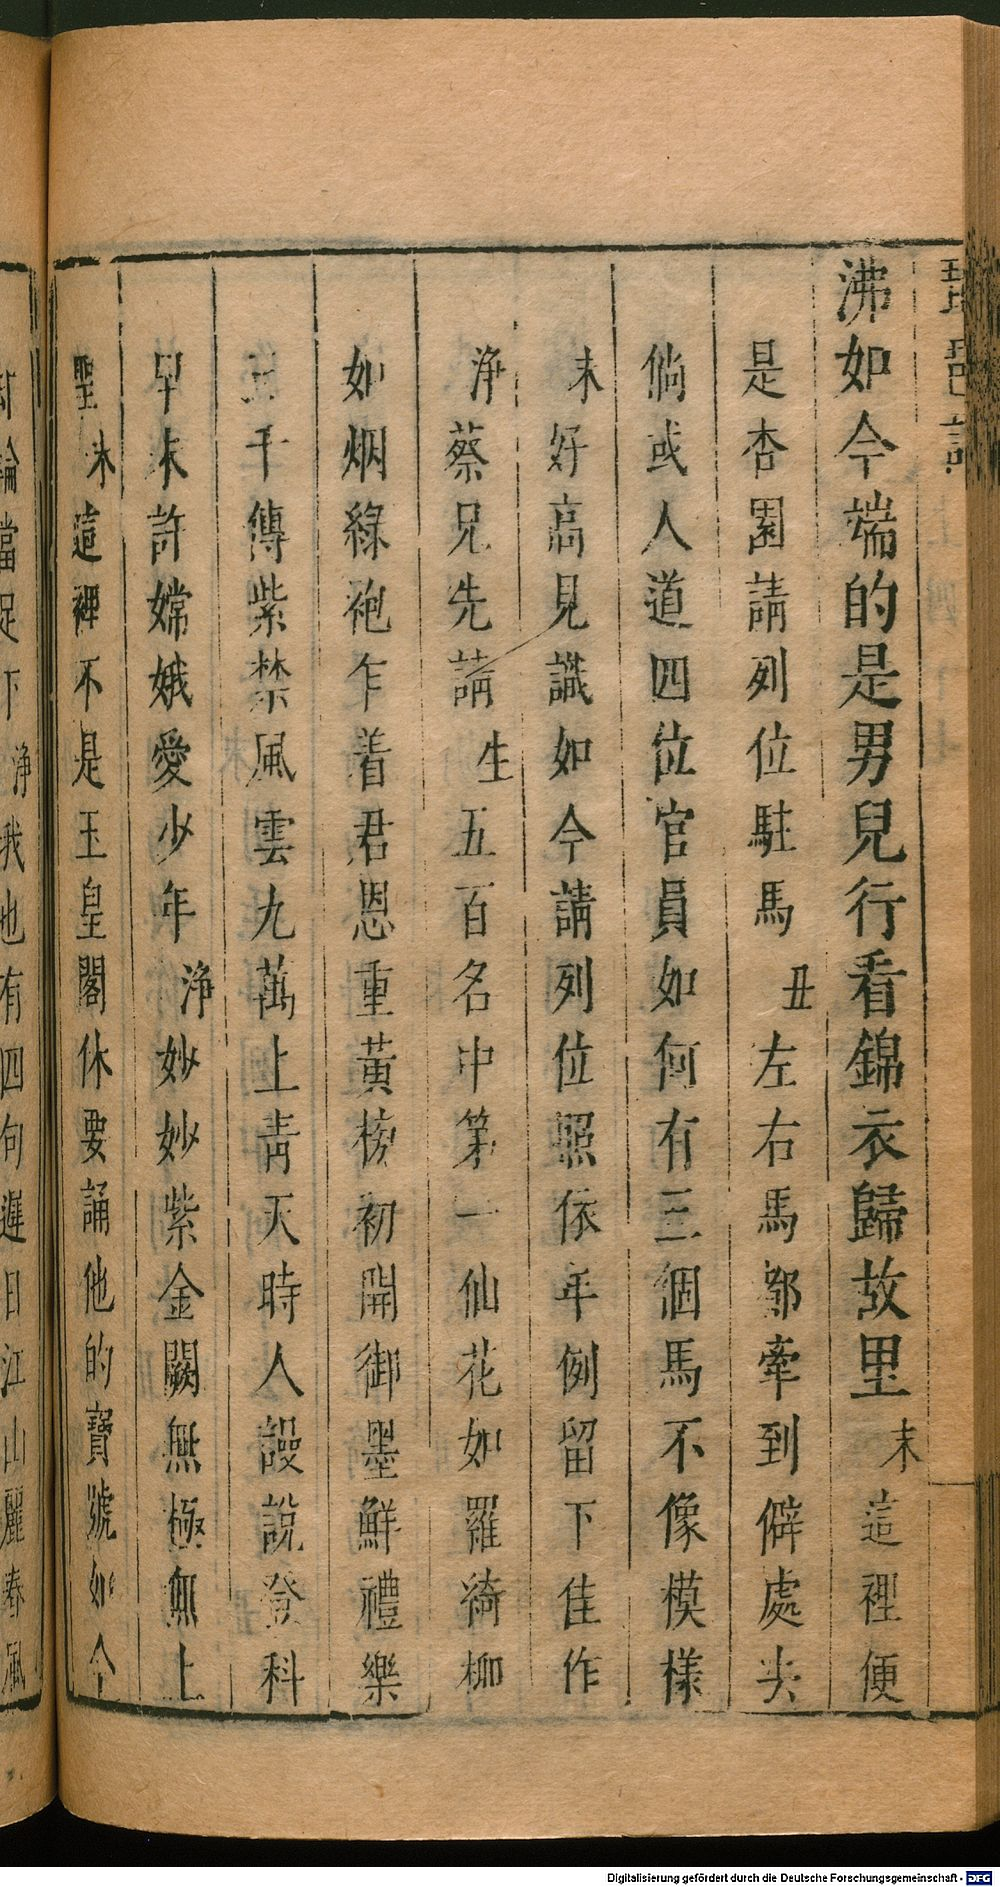 琵琶記
沸如今端的是男兒行看錦衣歸故里 末 這裡便
是杏園請列位駐馬 丑 左右馬都牽到僻處去
倘或人道四位官員如何有三個馬不像模樣
末 好高見識如今請列位照依年例留下佳作
淨 蔡兄先請 生 五百名中第一仙花如羅綺柳
如烟綠袍乍着君恩重黃榜初開御墨鮮禮樂
三千傳紫禁風雲九萬上青天時人謾說登科
早未許嫦娥愛少年 淨 妙妙紫金闕無極無上
聖 末 這裡不是玉皇閣休要誦他的寶號如今
討論當足下 淨 我也有四句遲日江山麗春風
Digitalisierung gefördert durch die Deutsche Forschungsgemeinschaft - DFG